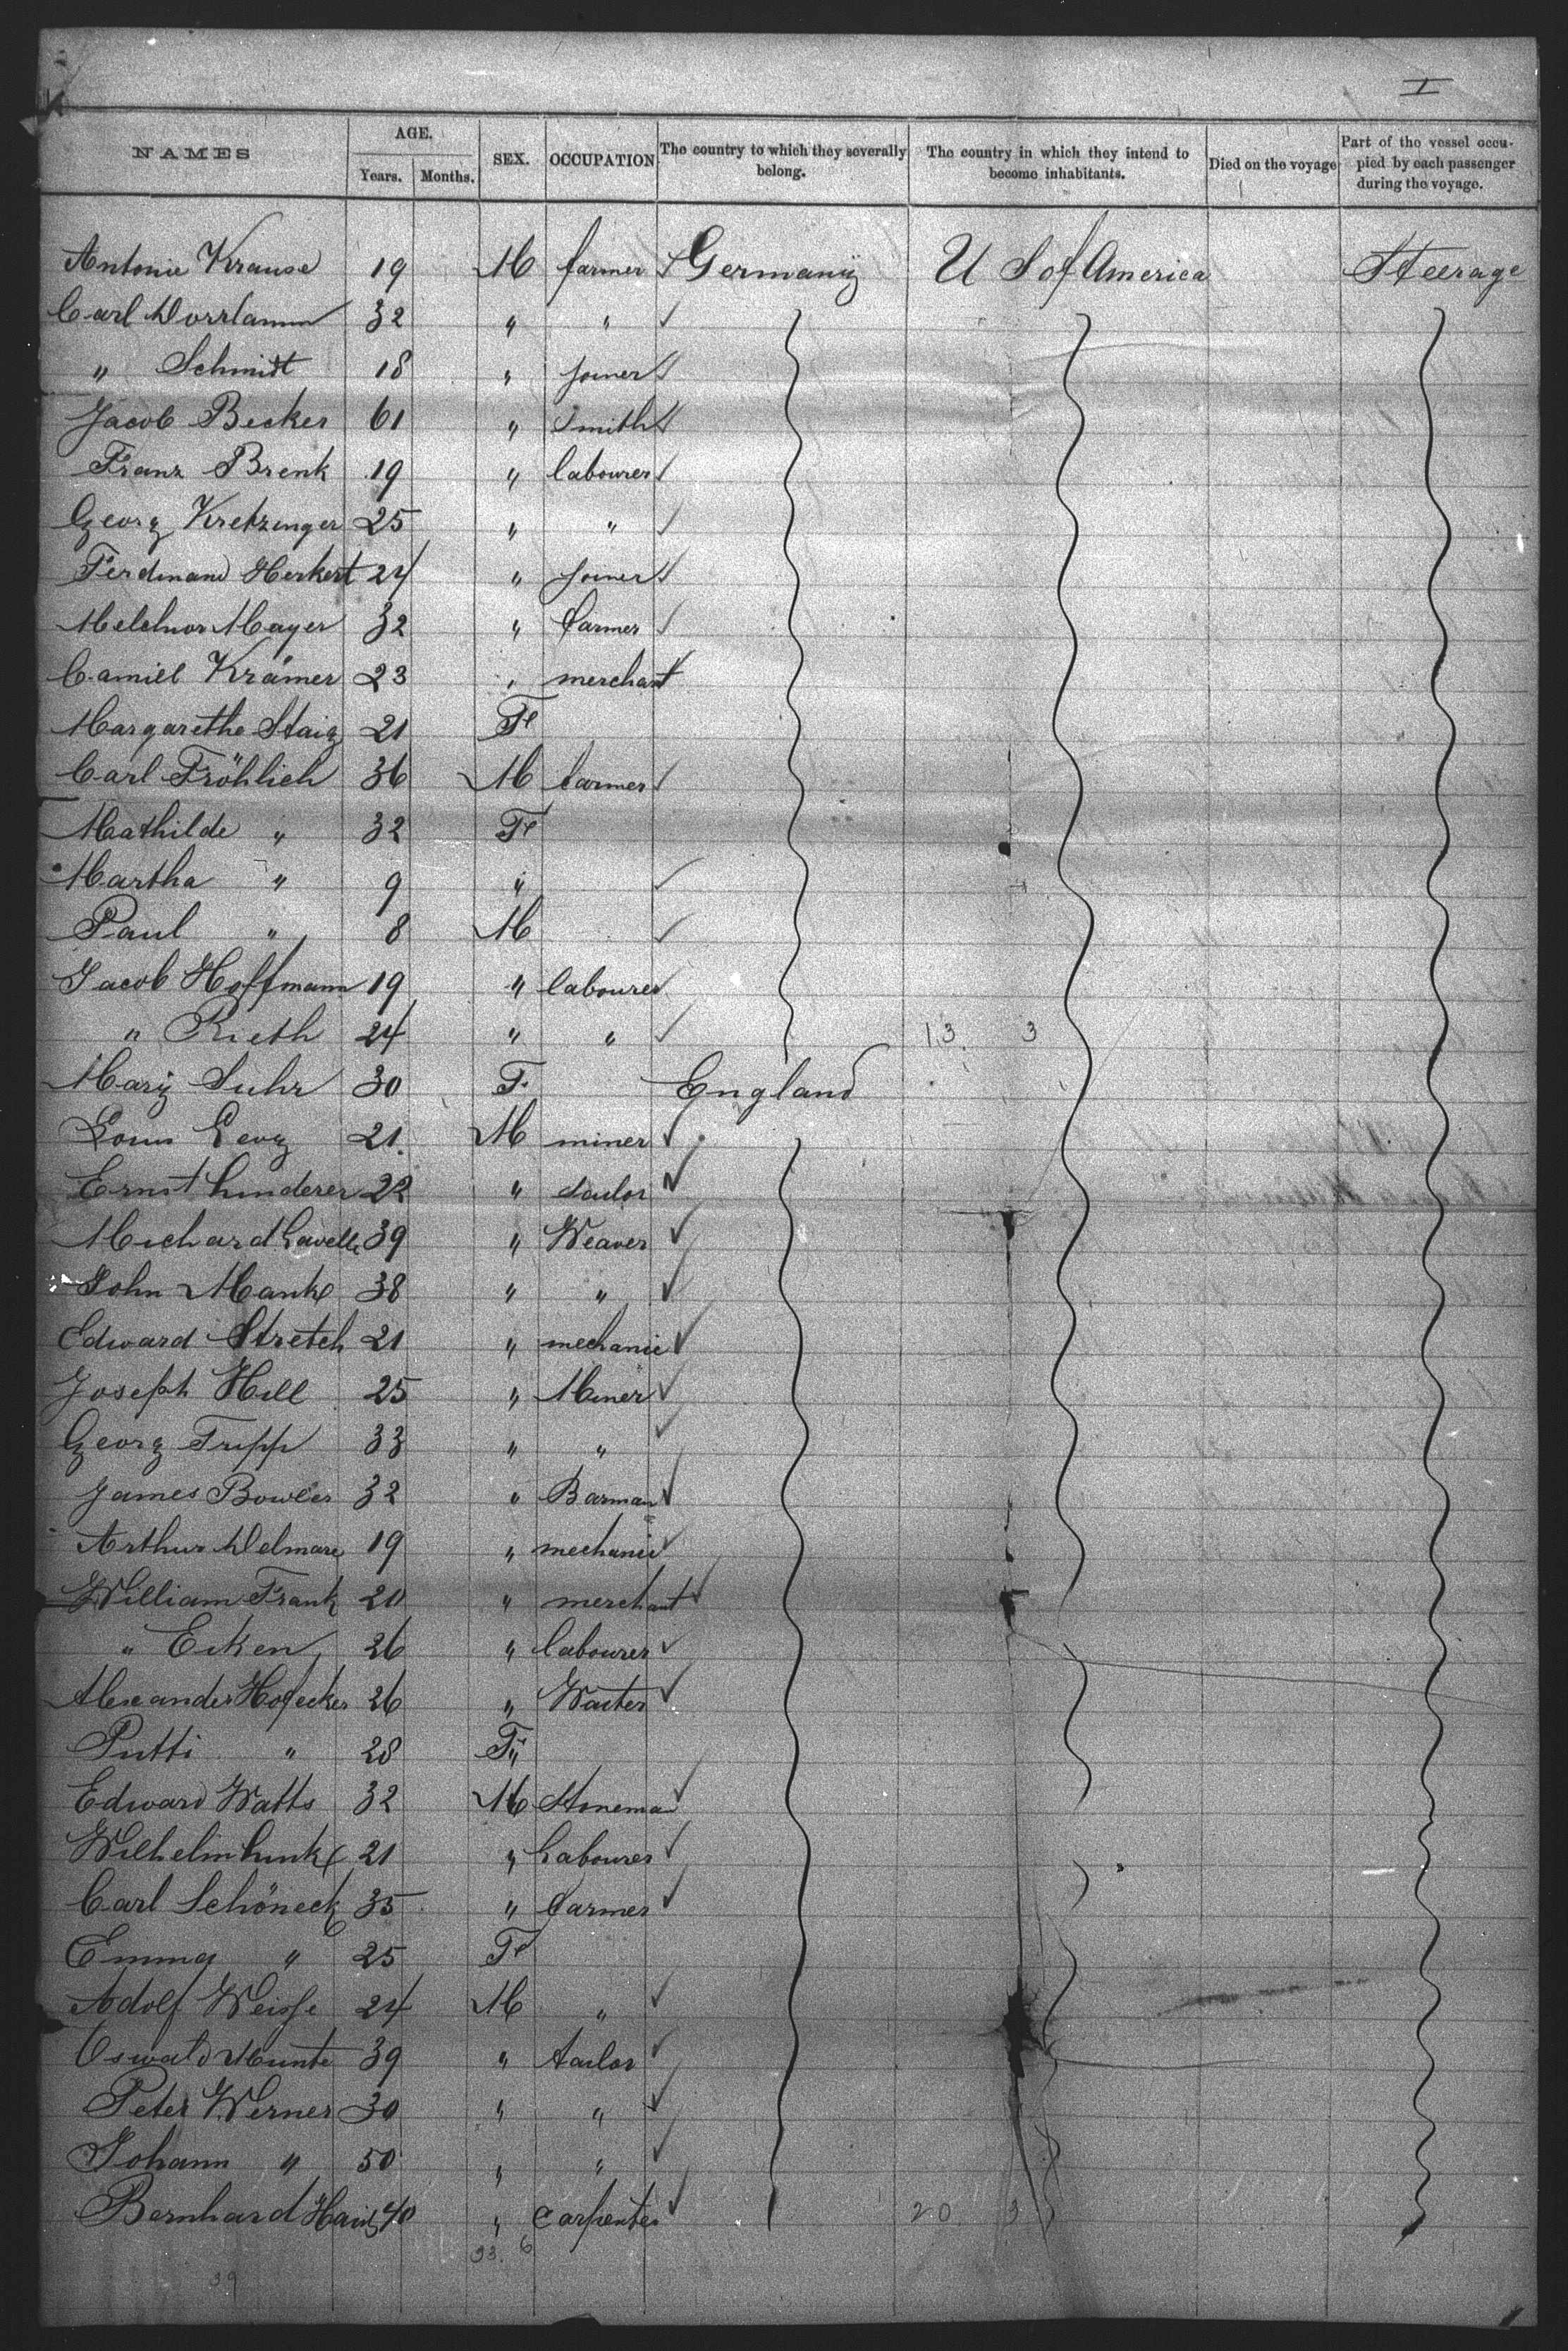 I
NAMES AGE. Years. Months. SEX. OCCUPATION. The country to which they severally belong. The country in which they intend to become inhabitants. Died on the voyage Part of the vessel occupied by each passenger during the voyage.
Antonie Krause 19 M farmer Germany U S of America Steerage
Carl 32 " "
" Schmidt 18 " joiner
Jacob Becker 61 " Smith
Franz Brenk 19 " labourer
Georg Kretzinger 25 " "
Ferdinand Herkert 24 " joiner
Melchior Mayer 32 " farmer
Camill Krämer 23 " merchant
Margarethe Staig 21 Fe
Carl Fröhlich 36 M farmer
Mathilde " 32 Fe
Martha " 9 "
Paul " 8 M
Jacob Hoffmann 19 " labourer
" Rieth 24 " " 13 3
Mary Suhr 30 F England
Louis Levy 21 M miner
Ernst Linderer 22 " Sailor
Michard Lavelle 39 " Weaver
John Manke 38 " "
Edward Stretch 21 " mechanic
Joseph Hill 25 " Miner
Georg Tripp 33 " "
James Bowler 32 " Barman
Arthur Delmare 19 " mechanic
William Frank 20 " merchant
" Eiken 26 " labourer
Alexander Hofecker 26 " Waiter
Putti " 28 F "
Edward Watts 32 M Stoneman
Wilhelm Link 21 " Labourer
Carl Schöneck 35 " farmer
Emma " 25 Fe
Adolf Weisse 24 M "
Oswald Munte 39 " tailor
Peter Werner 30 " "
Johann " 50 " "
Bernhard 40 " carpenter 20 3
33. 6
39